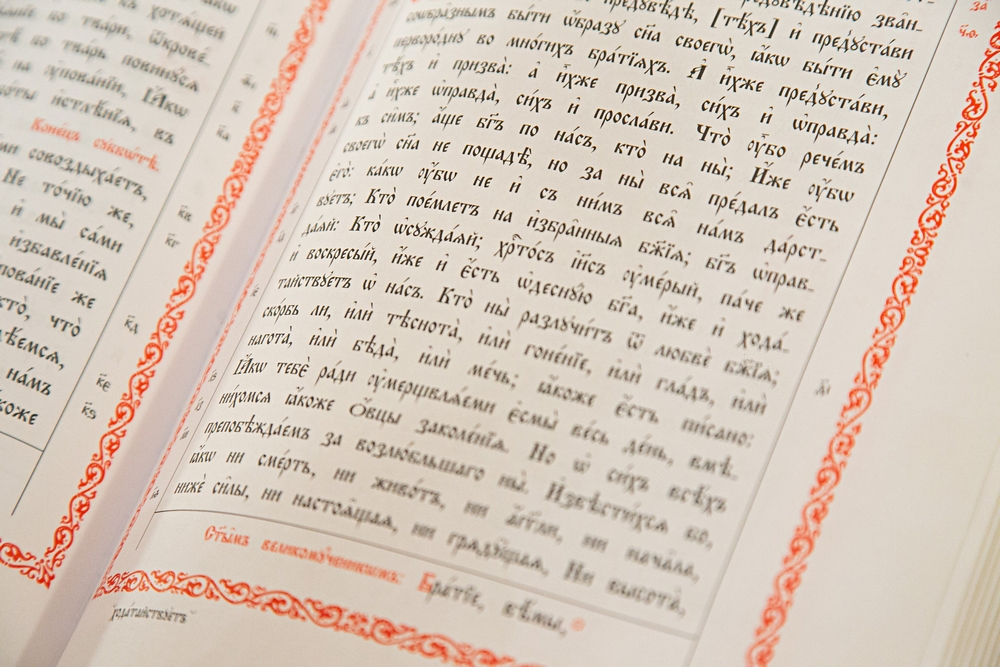 кѡ хотѧщен
по твари, ѿкровє
бо тварь повинꙋсѧ
на ᲂу҆пова́нїи, Ꙗ҆́кѡ
ѡты и҆стлѣ́нїѧ, въ
Коне́цъ сꙋббѡ́тѣ.
ми совоздыха́етъ,
Не то́чїю же,
и҆ мы̀ са́ми
и҆збавле́нїѧ
пова́нїе же
кто̀, что̀
дѣ́емсѧ,
на́мъ
коже
к҃в
к҃г
к҃д
к҃є
к҃ѕ
предꙋвѣ́дѣ, [тѣ́хъ] и҆ предꙋвѣ́дѣнїю зва́н-
соѡбра́знымъ бы́ти ѡ҆́бразꙋ сн҃а своегѡ̀, ꙗ҆́кѡ бы́ти є҆мꙋ̀
перворо́днꙋ во мно́гихъ бра́тїѧхъ. А҆ и҆̀хже предꙋста́ви,
тѣ́хъ и҆ призва̀: а҆ и҆̀хже призва̀, си́хъ и҆ ѡ҆правда̀:
а҆ и҆̀хже ѡ҆правда̀, си́хъ и҆ просла́ви. Что̀ ᲂу҆̀бо рече́мъ
къ си̑мъ; а҆́ще бг҃ъ по на́съ, кто̀ на ны̀; И҆́же ᲂу҆́бѡ
своегѡ̀ сн҃а не пощадѣ̀, но за ны̀ всѧ̑ пре́далъ є҆́сть
є҆го̀: ка́кѡ ᲂу҆́бѡ не и҆ съ ни́мъ всѧ̑ на́мъ да́рст-
вꙋетъ; Кто̀ пое́млетъ на и҆збра̑нныѧ бж҃їѧ; бг҃ъ ѡ҆прав-
да́ѧй: Кто̀ ѡ҆сꙋжда́ѧй; хрⷭ҇то́съ і҆и҃съ ᲂу҆ме́рый, па́че же
и҆ воскресы́й, и҆́же и҆ є҆́сть ѡ҆деснꙋ́ю бг҃а, и҆́же и҆ хода́-
тайствꙋетъ ѡ҆ на́съ. Кто̀ ны̀ разлꙋчи́тъ ѿ любвѐ бж҃їѧ;
ско́рбь ли, и҆лѝ тѣснота̀, и҆лѝ гоне́нїе, и҆лѝ гла́дъ, и҆лѝ
нагота̀, и҆лѝ бѣда̀, и҆лѝ ме́чь; ꙗ҆́коже є҆́сть пи́сано:
Ꙗ҆́кѡ тебє̀ ра́ди ᲂу҆мерщвлѧ́еми є҆смы̀ ве́сь де́нь, вмѣ-
ни́хомсѧ ꙗ҆́коже ѻ҆́вцы заколе́нїѧ. Но ѡ҆ си́хъ всѣ́хъ
препобѣжда́емъ за возлю́бльшаго ны̀. И҆звѣсти́хсѧ бо,
ꙗ҆́кѡ ни сме́рть, ни живо́тъ, ни а҆́гг҃ли, ни нача̑ла,
нижѐ си̑лы, ни настоѧ̑щаѧ, ни грѧдꙋ̑щаѧ, Ни высота̀,
Ст҃ы̑мъ великомꙋ́ченикѡмъ: Бра́тїе, вѣ́мы,
хода́тайствꙋетъ
за҃
ч.ѳ.